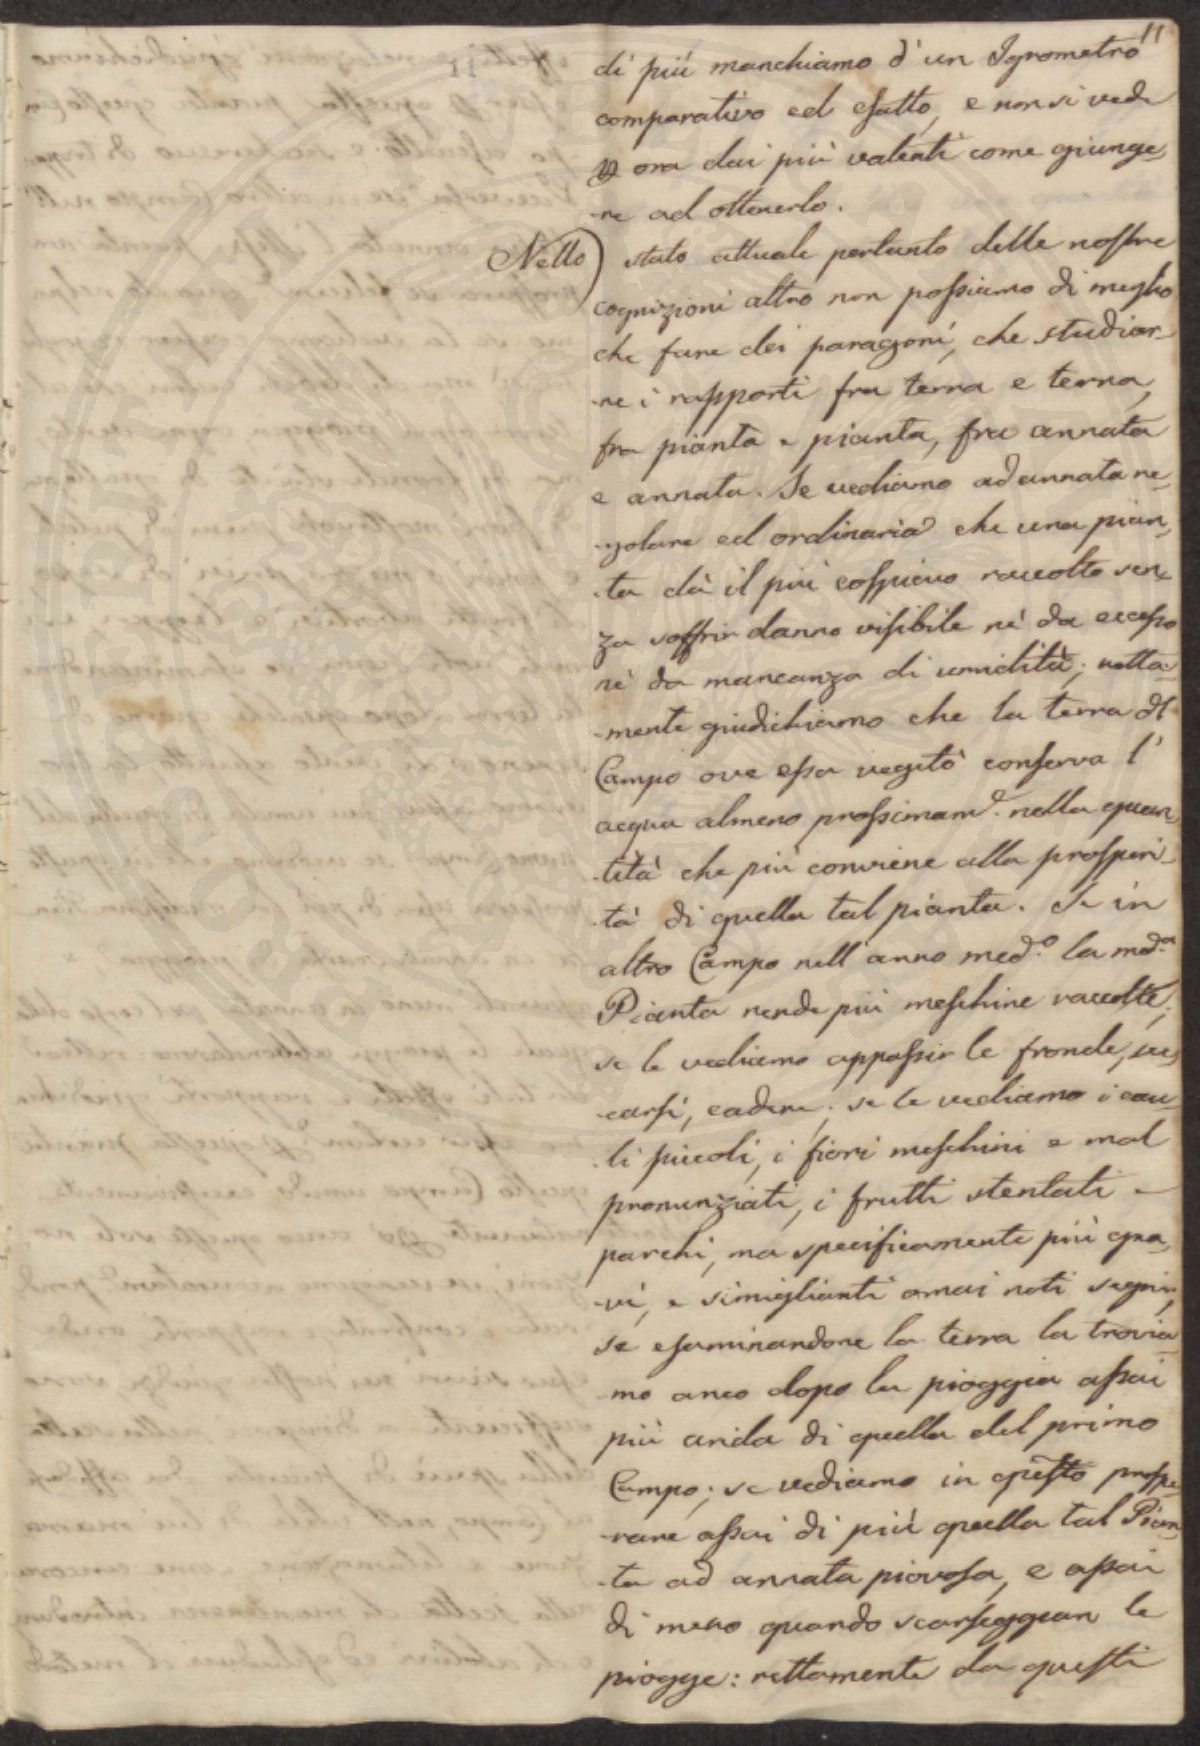 11
di più manchiamo d' un Igrometro
comparativo ed esatto, e non si vede
ora dai più valenti come giunge,
-re ad ottenerlo.
Nello) stato attuale pertanto delle nostre
cognizioni altro non possiamo di meglio
che fare dei paragoni, che studiar-
-ne i rapporti fra terra e terra,
fra pianta e pianta, fra annata
e annata. Se vediamo ad annata re-
-golare ed ordinaria che una pian,
-ta dà il più cospicuo raccolto sen-
za soffrir danno visibile nè da eccesso
nè da mancanza di umidità; retta-
-mente giudichiamo che la terra del
Campo ove essa vegitò conserva l'
acqua almeno prossimam.e nella quan,
-tità che più conviene alla prosperi-
-tà di quella tal pianta. Se in
altro Campo nell'anno med.o la med.a
Pianta rende più meschine raccolte;
se le vediamo appassir le fronde, sec,
-carsi, cadere; se le vediamo i cau-
-li piccoli, i fiori meschini e mal
pronunziati, i frutti stentati e
parchi, ma specificamente più gra,
-vi, e simiglianti omai noti segni,
se esaminandone la terra la trovia-
-mo anco dopo la pioggia assai
più arida di quella del primo
Campo; se vediamo in questo prospe-
-rare assai di più quella tal Pian,
-ta ad annata piovosa, e assai
di meno quando scarseggian le
piogge: rettamente da questi